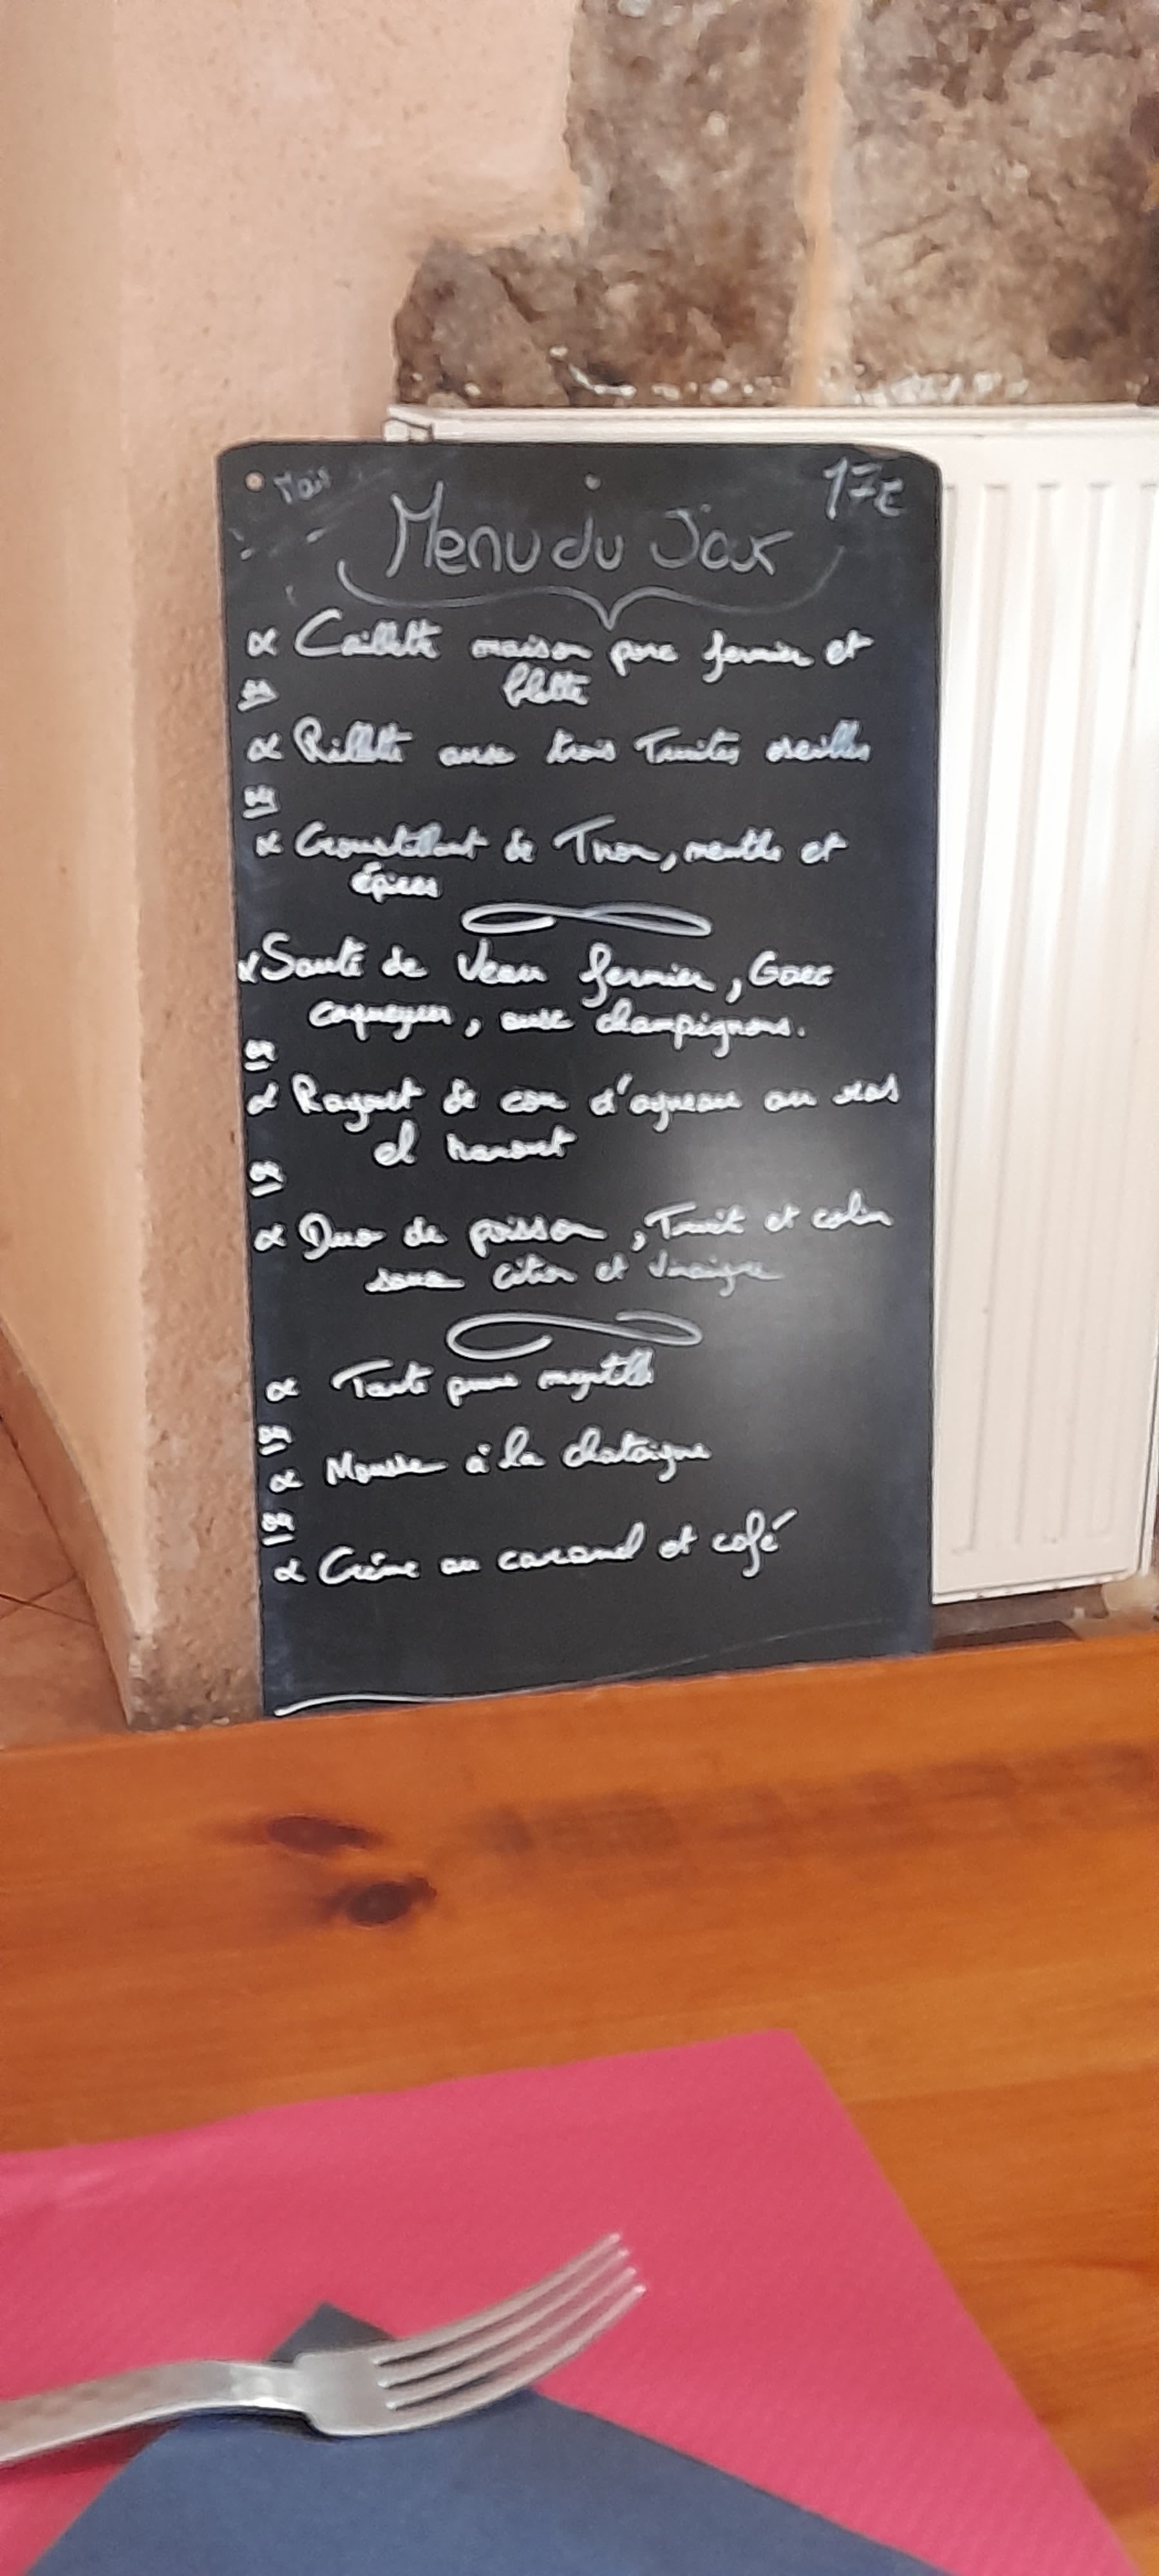 17€
Menu du Jour
Caillette maison porc fermier et
blette
ou
Rillette aux trois Truites oseilles
ou
Croustillant de Thon, menthe et
épices
Sauté de Veau fermier, Gaec
, aux champignons.
ou
Ragout de cou d'agneau au ras
el hanout
ou
Duo de poisson, Truite et colin
sauce citron et vinaigre
Tarte poire myrtille
ou
Mousse à la chataigne
ou
Crème au caramel et café